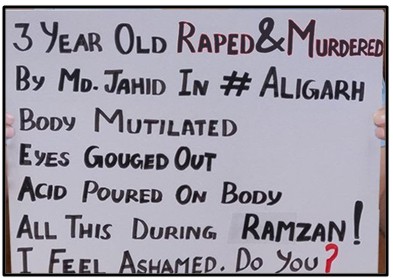 3 YEAR OLD RAPED & MURDERED
BY MD. JAHID IN # ALIGARH
BODY MUTILATED
EYES GOUGED OUT
ACID POURED ON BODY
ALL THIS DURING RAMZAN!
I FEEL ASHAMED. DO YOU?